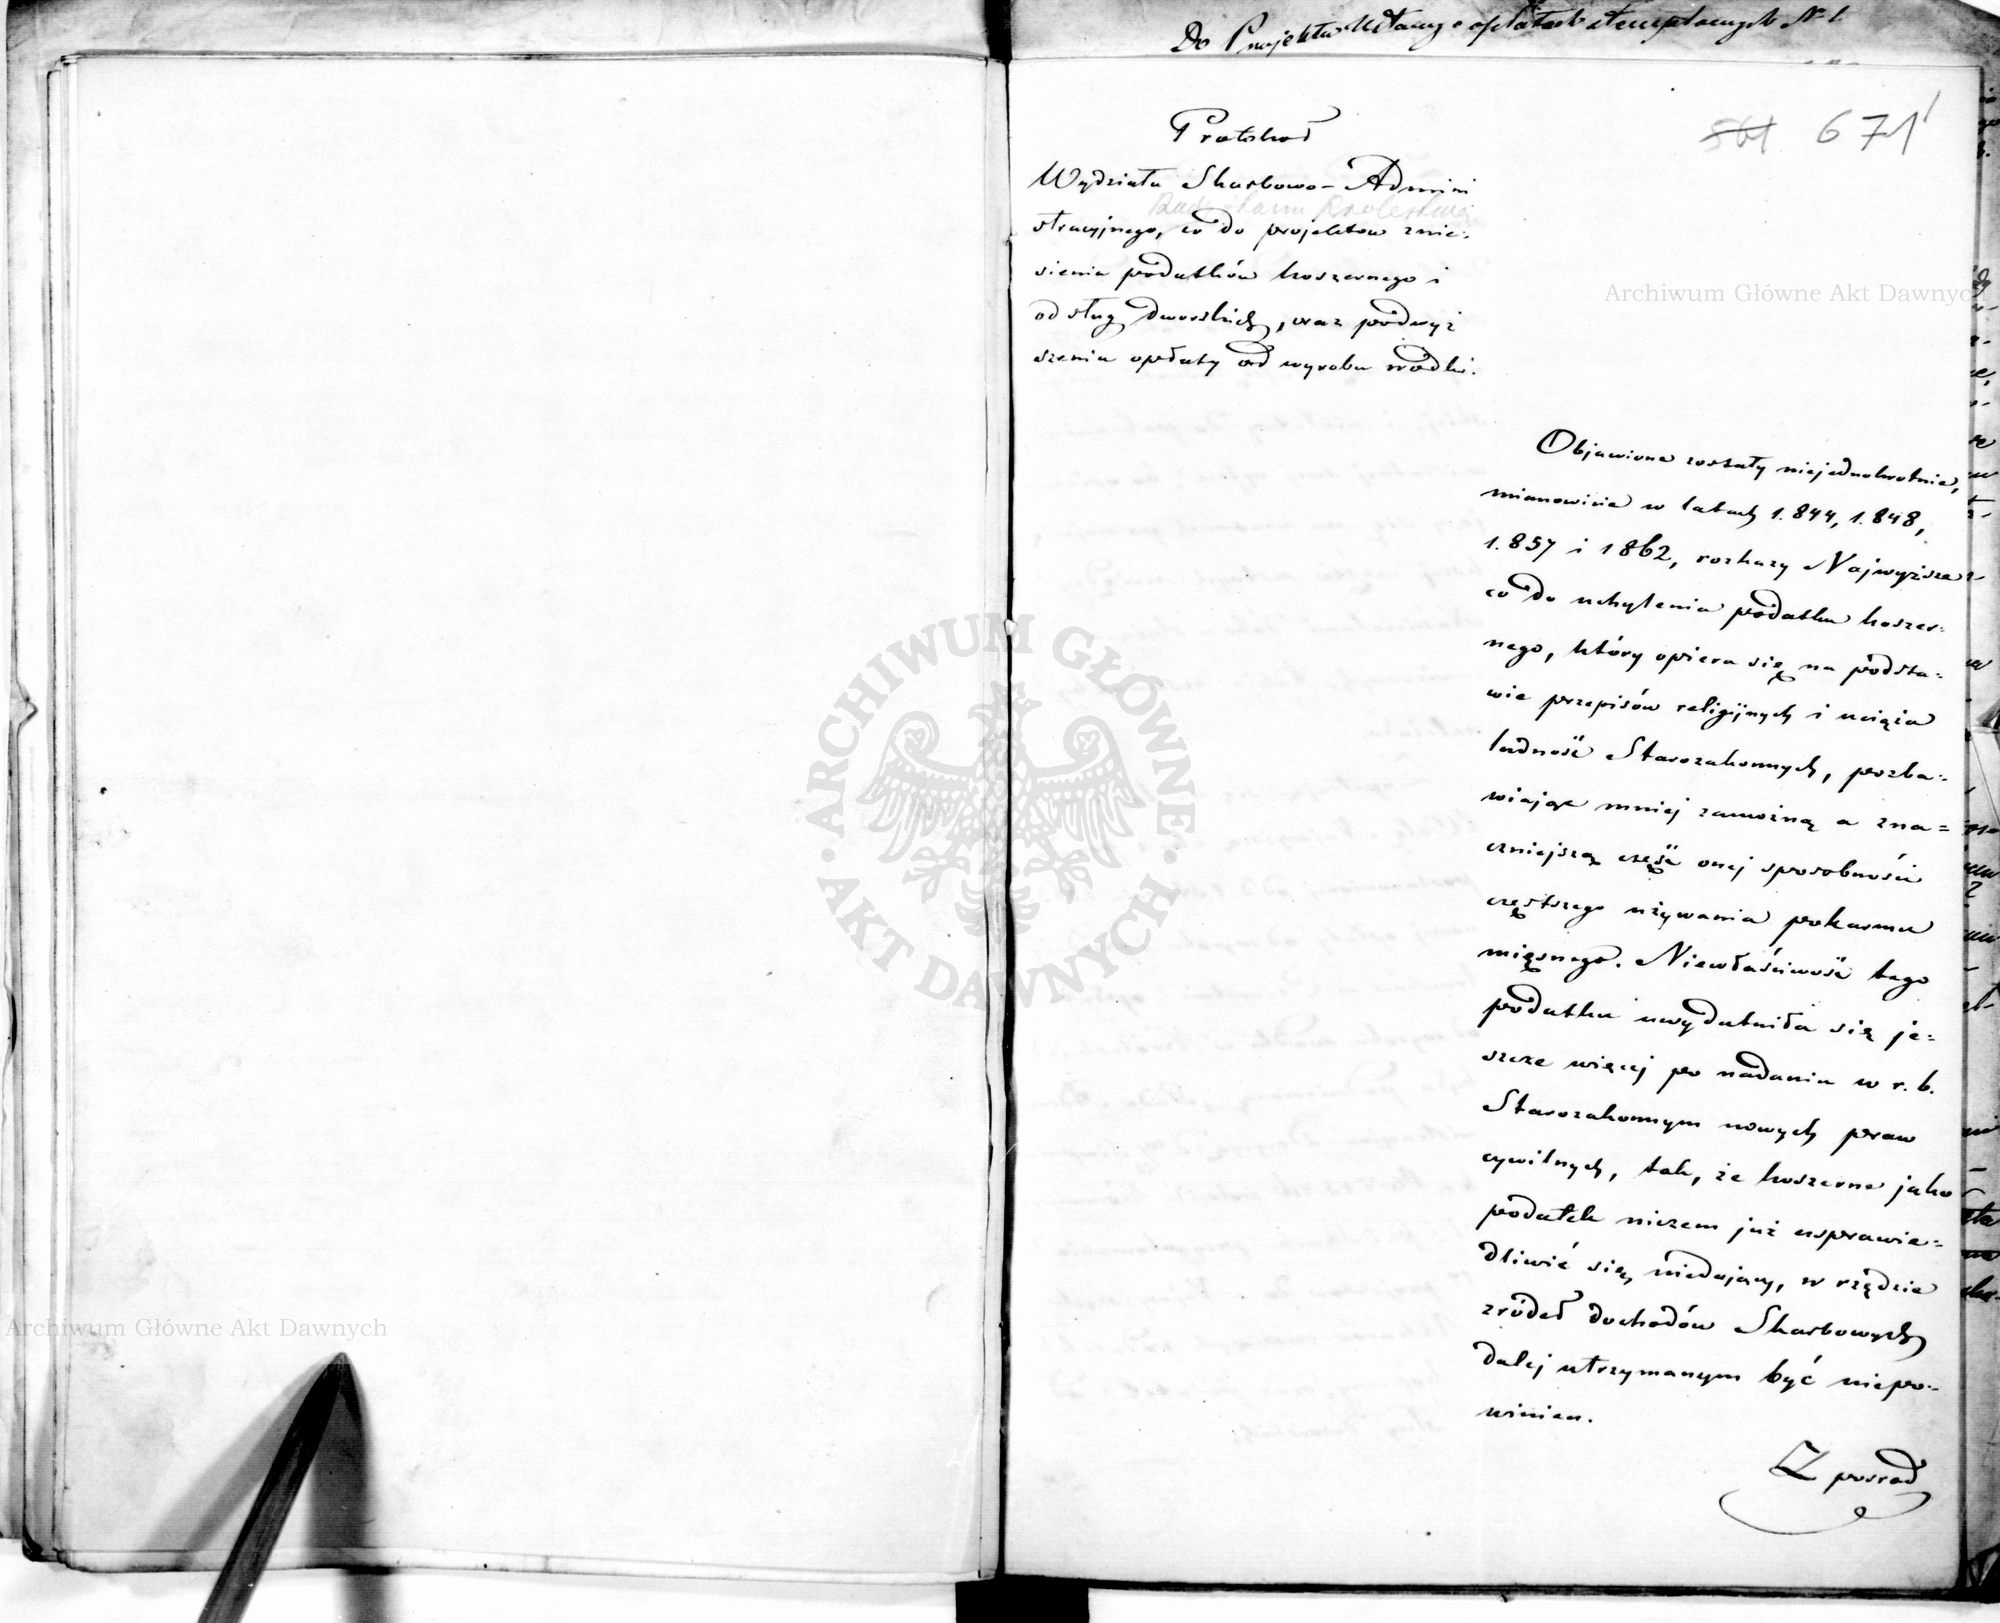 Do Projektu Ustawy o opłatach stemplowych N 1.
561 671
Protokoł
Wydziału Skarbowo-Admini
Rady Stanu Królestwa
stracyjnego, co do projektow znie:
sienia podatków koszernego i
od sług dworskich, oraz podwyż
szenia opłaty od wyrobu wódki.
Objawione zostały niejednokrotnie,
mianowicie w latach 1.844, 1.848,
1.857 i 1862, rozkazy Najwyższe
co do uchylenia podatku koszer:
nego, który opiera się na podsta:
wie przepisów religijnych i uciąża
ludność Starozakonnych, pozba:
wiając mniej zamożną a zna=
czniejszą część onej sposobności
częstszego używania pokarmu
mięsnego. Niewłaściwość tego
podatku uwydatniła się je=
szcze więcej po nadaniu w r. b.
Starozakonnym nowych praw
cywilnych, tak, że koszerne jako
podatek niczem już usprawie=
dliwić się niedający, w rzędzie
zródeł dochodów Skarbowych
dalej utrzymanym być niepo-
winien.
Z posrod
Archiwum Główne Akt Dawnych
ARCHIWUM GŁÓWNE
AKT DAWNYCH
Archiwum Główne Akt Dawnych